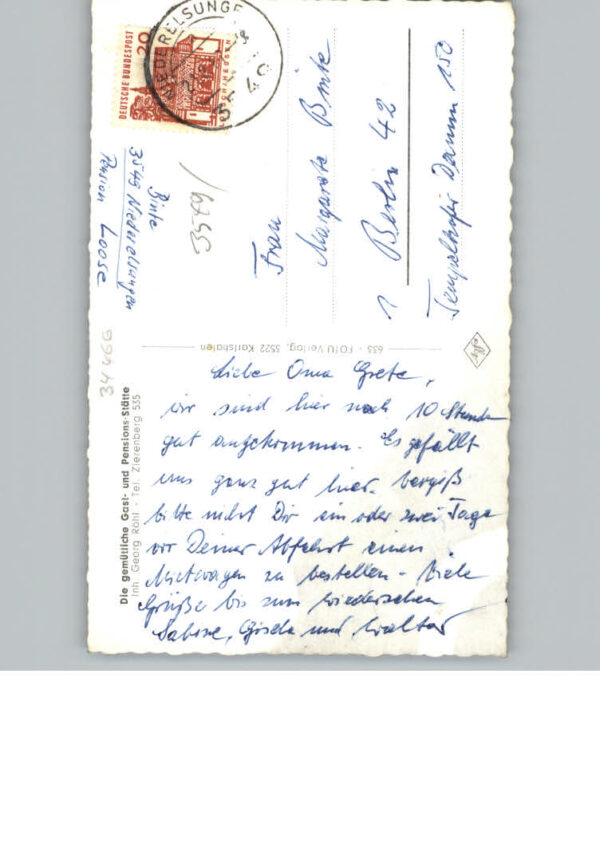 NIEDERELSUNGEN
3549
DEUTSCHE BUNDESPOST
20
Binte
3549 Niederelsungen
Pension Loose
Frau
Margarete Binte
1 Berlin 42
Tempelhofer Damm 150
635 - FOTU Verlag, 3522 Karlshafen
34466
Die gemütliche Gast- und Pensions-Stätte
Inh. Georg Röhl - Tel. Zierenberg 535
Liebe Oma Grete,
wir sind hier nach 10 Stunden
gut angekommen. Es gefällt
uns ganz gut hier. Vergiß
bitte nicht Dir ein oder zwei Tage
vor Deiner Abfahrt einen
Mietwagen zu bestellen - Viele
Grüße bis zum Wiedersehen
Sabine, Gisela und Walter